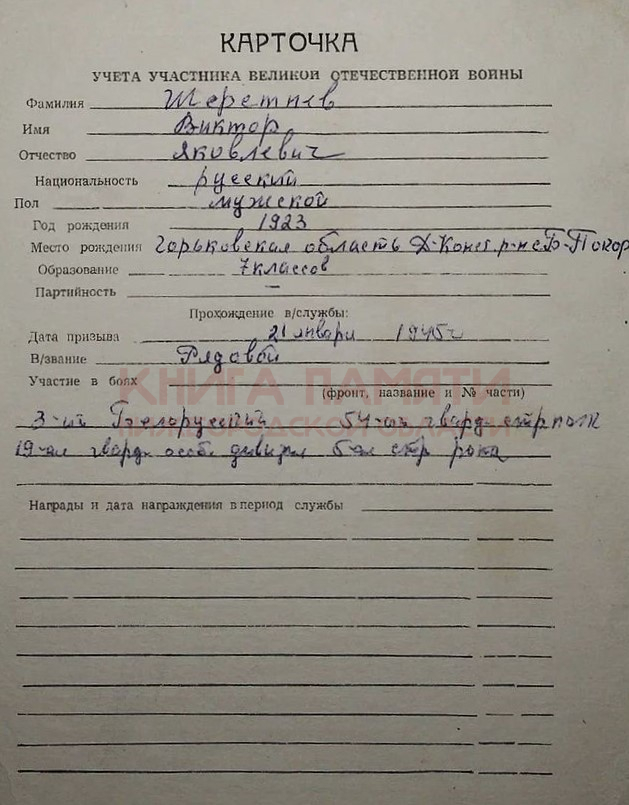 КАРТОЧКА
УЧЕТА УЧАСТНИКА ВЕЛИКОЙ ОТЕЧЕСТВЕННОЙ ВОЙНЫ
Фамилия Шеретнев
Имя Виктор
Отчество Яковлевич
Национальность русский
Пол мужской
Год рождения 1923
Место рождения Горьковская область Д-Конст. р-н с Б-Покор
Образование 7 классов
Партийность —
Прохождение в/службы:
Дата призыва 21 января 1945 г
В/звание Рядовой
Участие в боях
(фронт, название и № части)
КНИГА ПАМЯТИ
НИЖЕГОРОДСКОЙ ОБЛАСТИ
3-ий Белорусский 54-ый гвард. стр полк
19-ая гвард. дивизия 5ая стр рота
Награды и дата награждения в период службы